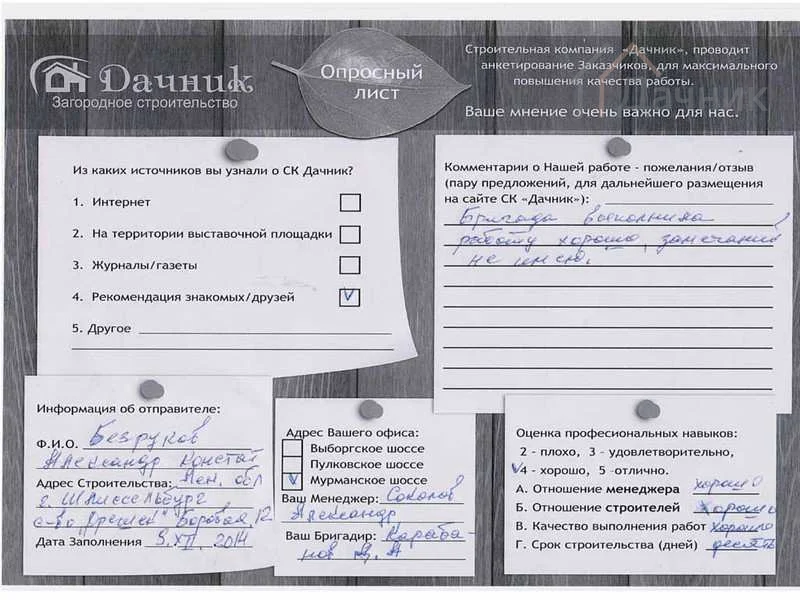 Дачник
Загородное строительство
Опросный
лист
Строительная компания «Дачник», проводит
анкетирование Заказчиков, для максимального
повышения качества работы.
Дачник
Ваше мнение очень важно для нас.
Из каких источников вы узнали о СК Дачник?
1. Интернет
2. На территории выставочной площадки
3. Журналы/газеты
4. Рекомендация знакомых/друзей V
5. Другое
Комментарии о Нашей работе - пожелания/отзыв
(пару предложений, для дальнейшего размещения
на сайте СК «Дачник»):
Бригада выполнила
работу хорошо, замечаний
не имею.
Информация об отправителе:
Ф.И.О. Безруков
Александр Констан
Адрес Строительства: Лен. обл
г. Шлиссельбург
Боровая, 12
Дата Заполнения 9.XII. 2014
Адрес Вашего офиса:
Выборгское шоссе
Пулковское шоссе
V Мурманское шоссе
Ваш Менеджер: Соколов
Александр
Ваш Бригадир: Караба-
нов
Оценка професиональных навыков:
2 - плохо, 3 - удовлетворительно,
V 4 - хорошо, 5 -отлично.
А. Отношение менеджера хорошо
Б. Отношение строителей хорошо
В. Качество выполнения работ хорошо
Г. Срок строительства (дней) десять